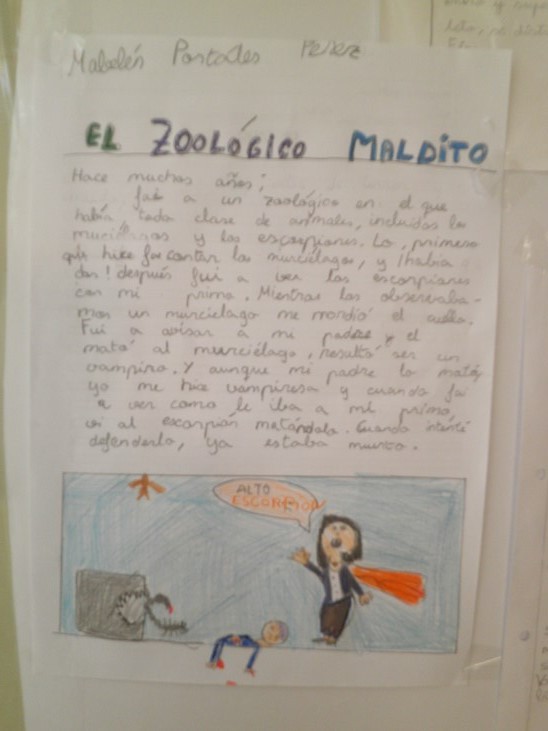 Pérez
EL ZOOLÓGICO MALDITO
Hace muchos años;
fui a un zoológico en el que
había toda clase de animales, incluidos los
y los escorpiones. Lo primero
que hice fue contar los murciélagos, y ¡había
dos! después fui a ver los escorpiones
con mi primo. Mientras los observaba-
mos un murciélago me mordió el cuello.
Fui a avisar a mi padre y el
mató al murciélago, resultó ser un
vampiro. Y aunque mi padre lo mató,
yo me hice vampiresa y cuando fui
a ver como le iba a mi primo,
vi al escorpión matándolo. Cuando intenté
defenderlo, ya estaba muerto.
ALTO
ESCORPIÓN